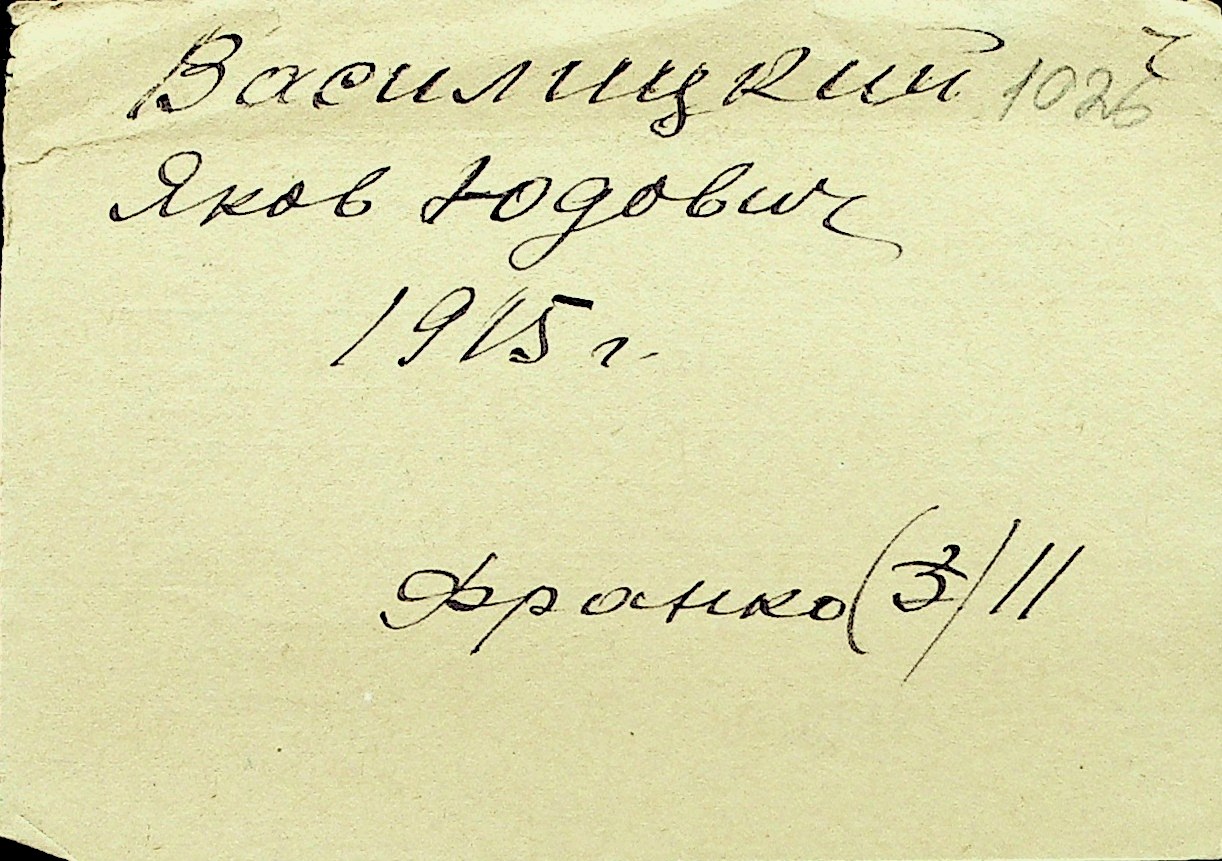 Василицкий 1026
Яков Юдович
1915 г.
Франко (3) 11